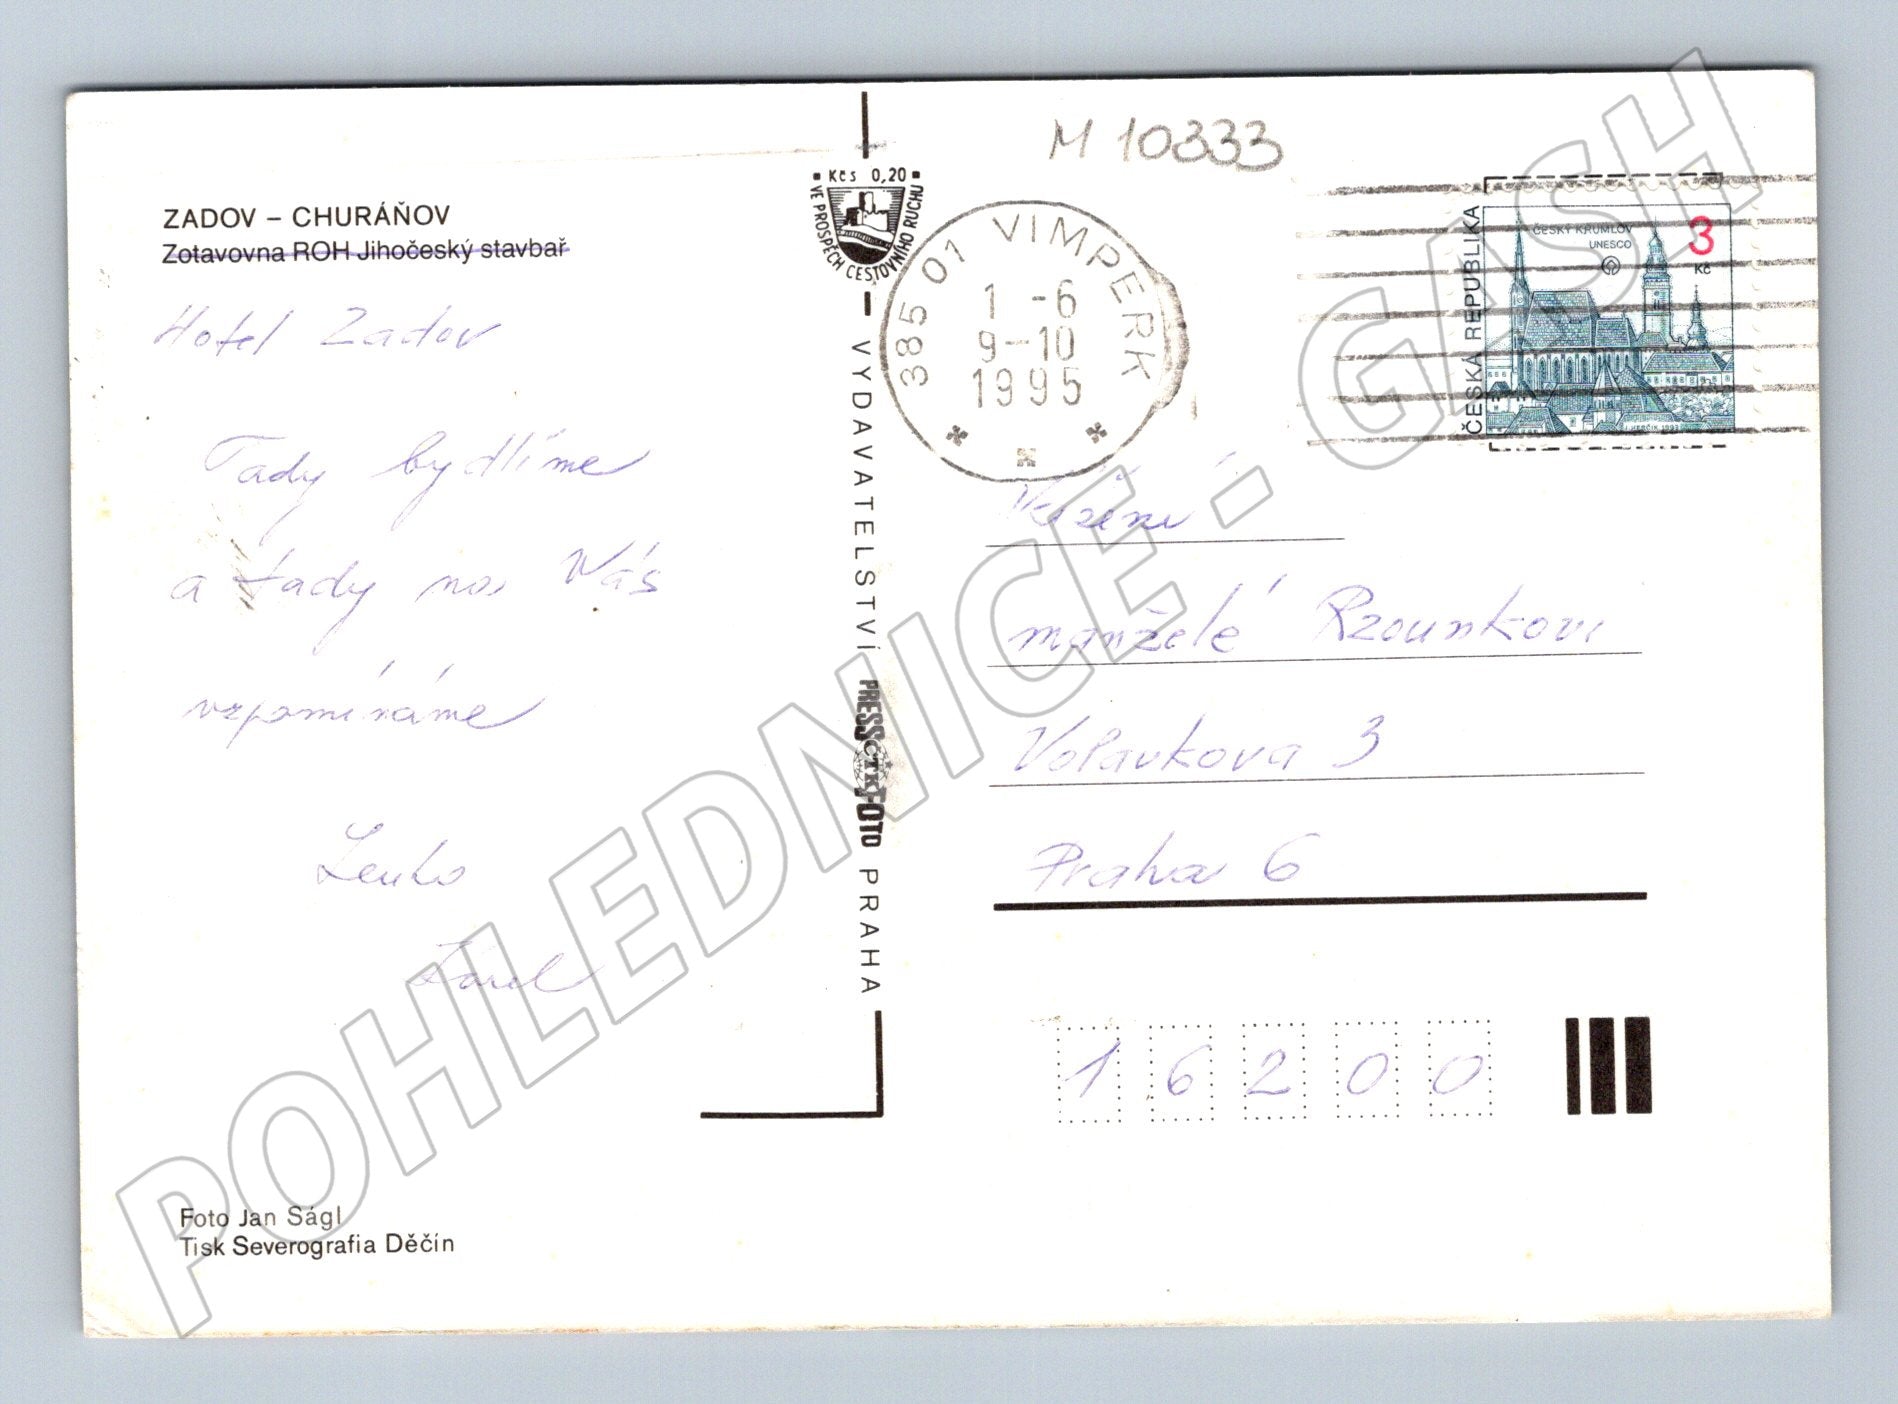 M 10333
Kčs 0,20
VE PROSPĚCH CESTOVNÍHO RUCHU
ZADOV – CHURÁŇOV
Zotavovna ROH Jihočeský stavbař
Hotel Zadov
Tady bydlíme
a tady na Vás
vzpomínáme
Lenka
Karel
Foto Jan Ságl
Tisk Severografia Děčín
VYDAVATELSTVÍ PRESSFOTO PRAHA
ČTK
385 01 VIMPERK
1 -6
9--10
1995
ČESKÁ REPUBLIKA
ČESKÝ KRUMLOV
UNESCO
3
Kč
J. HERČÍK 1993
Vážení
manželé Rzounkovi
Volavkova 3
Praha 6
16200
POHLEDNICE - GASH